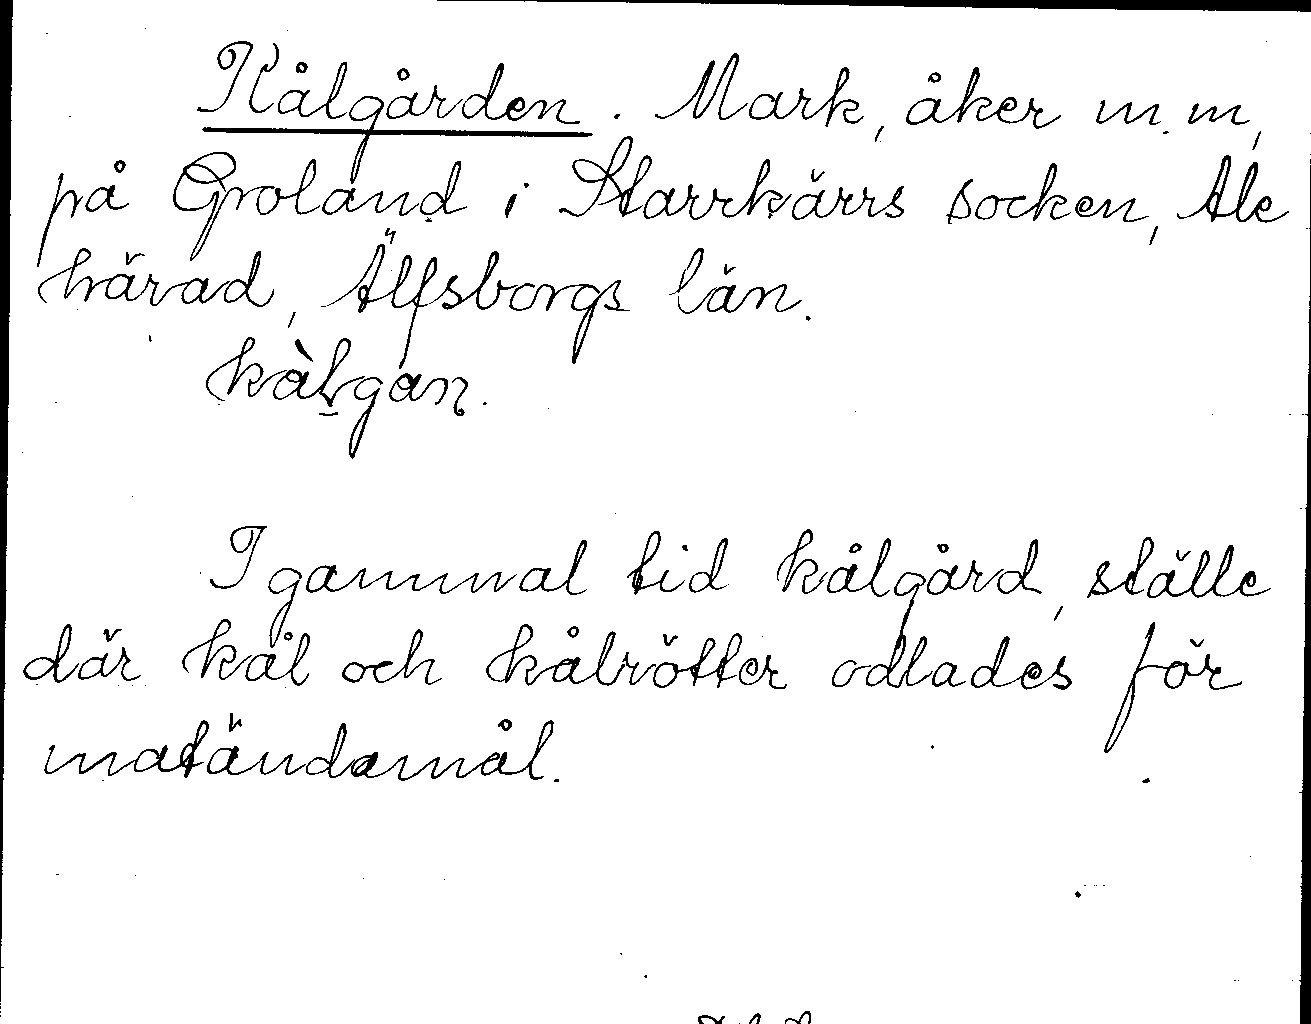 Kålgården. Mark, åker m.m,
på Groland i Starrkärrs socken, Ale
härad, Älfsborgs län.
I gammal tid kålgård, ställe
där kål och kålrötter odlades för
matändamål.